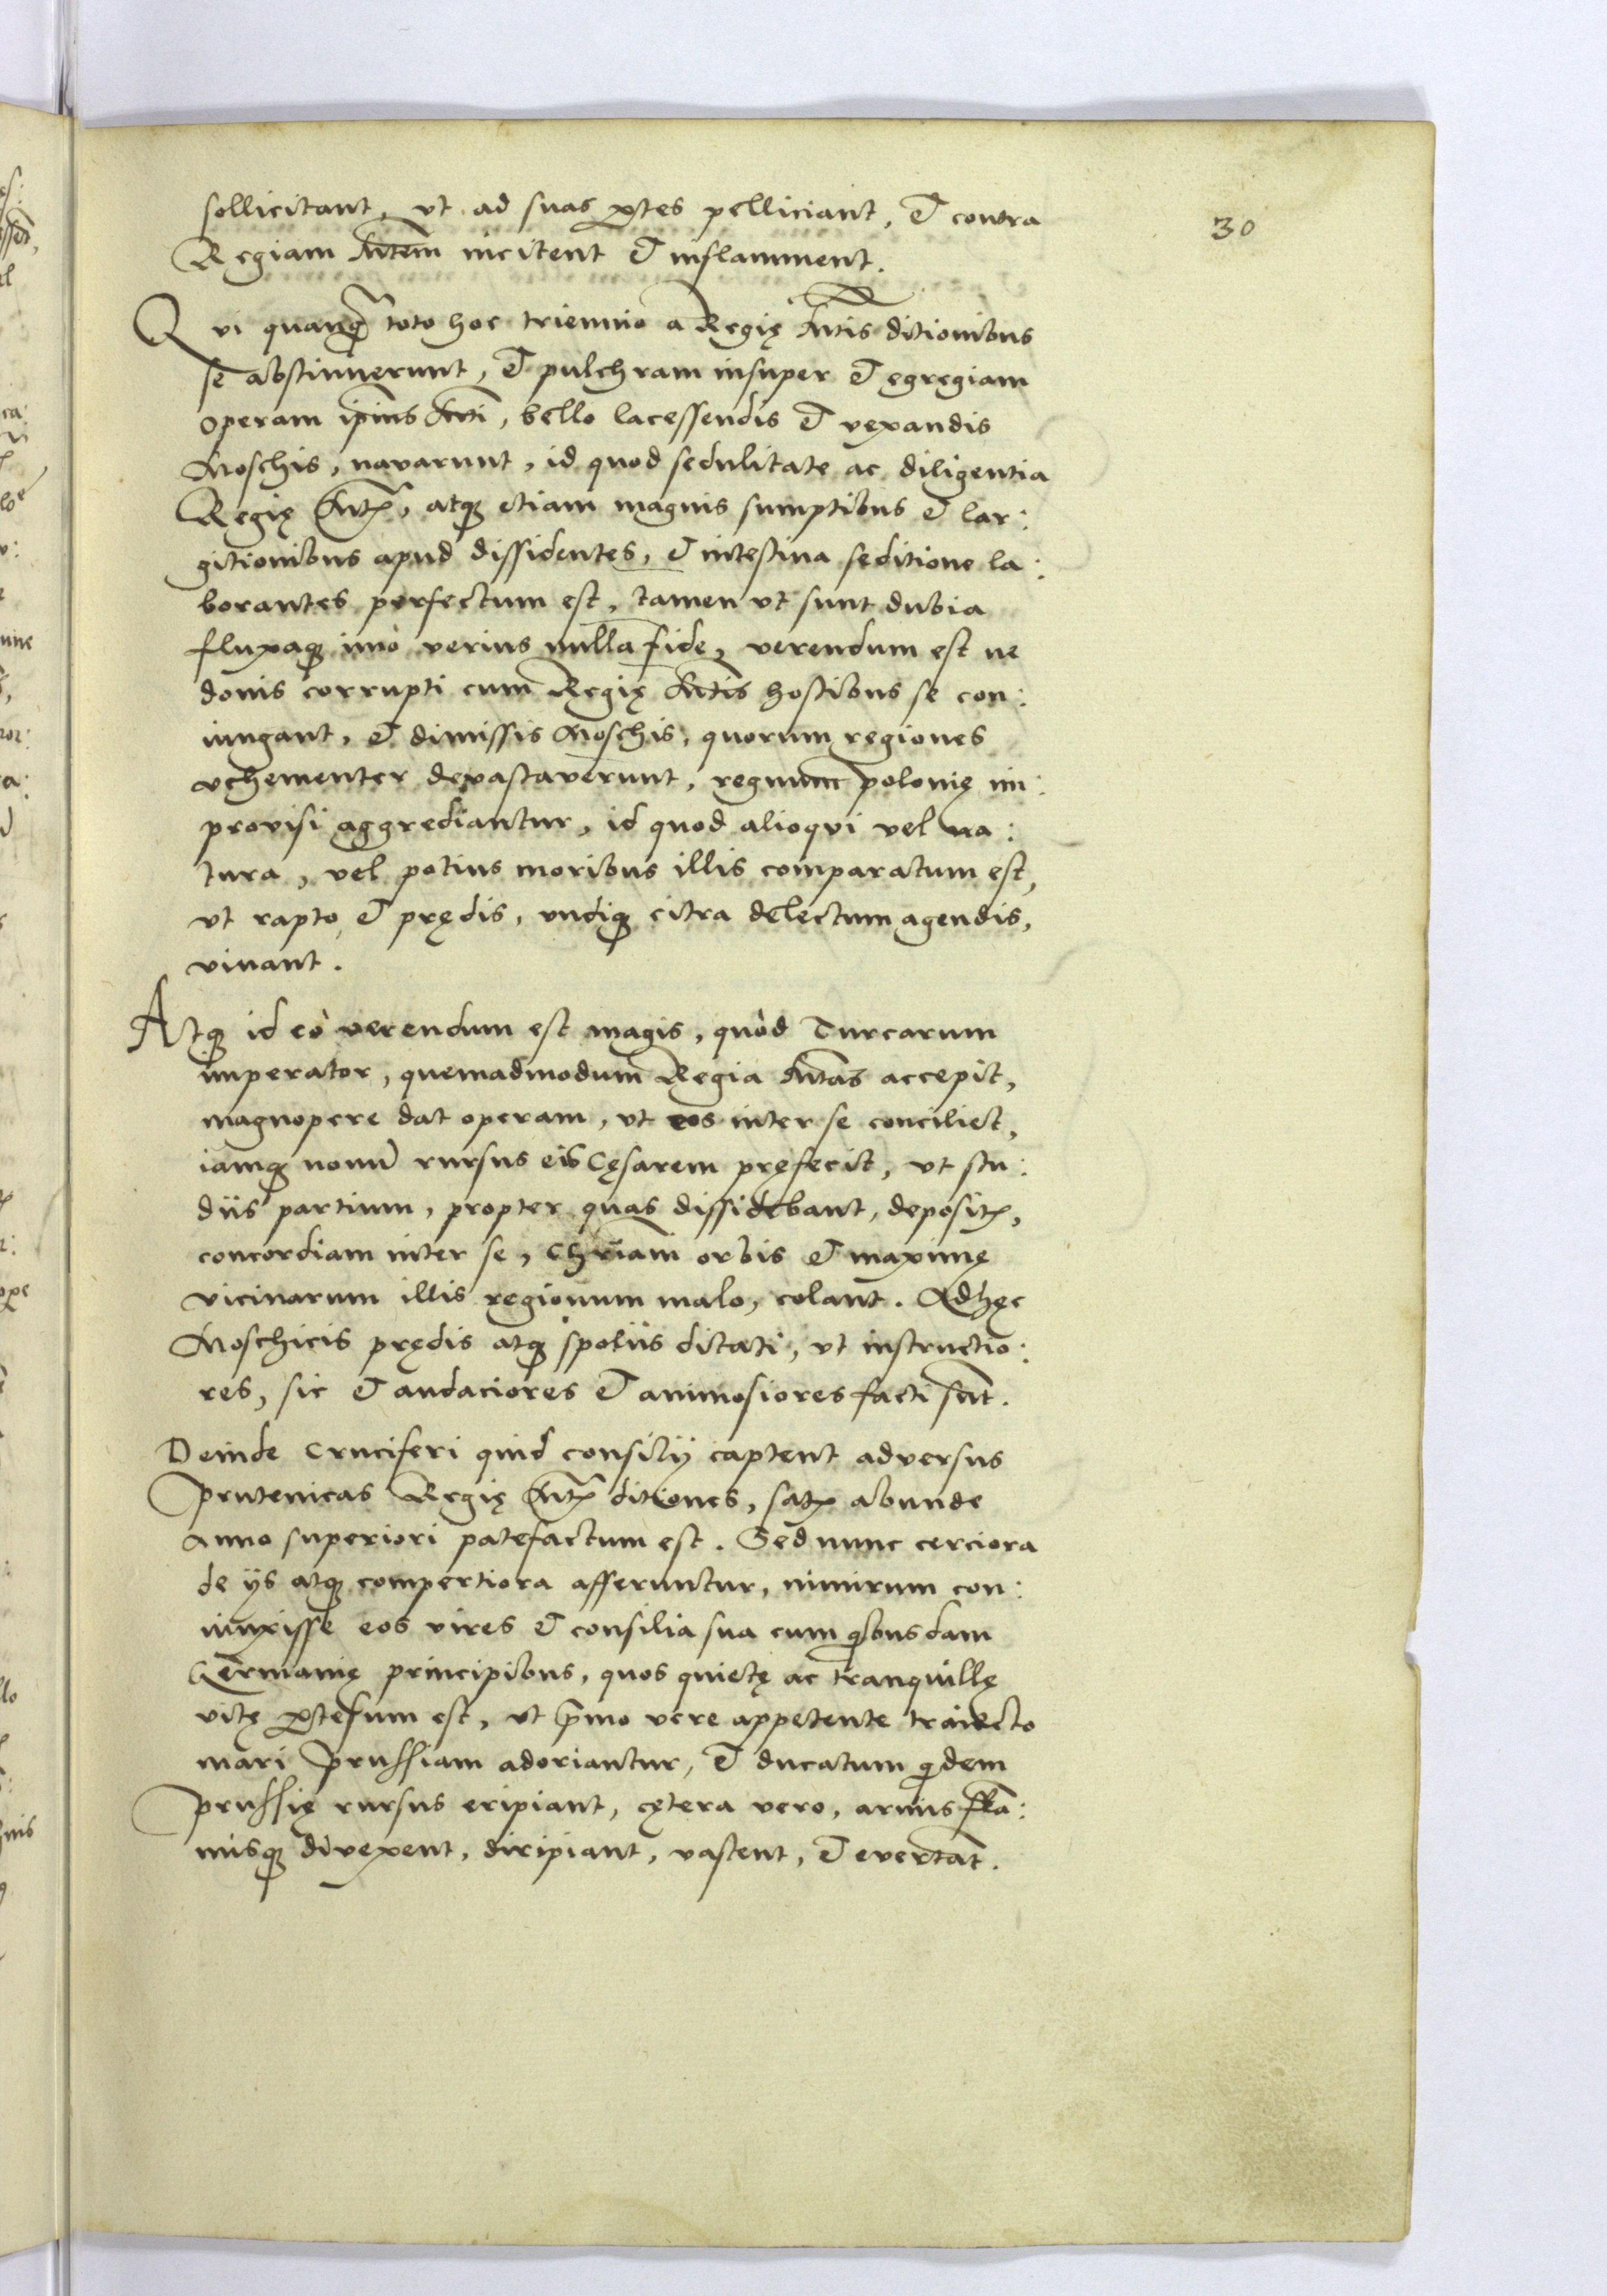 30
sollicitant, vt ad suas ꝑtes pelliciant, et contra
Regiam Mtem incitent et inflamment.
Qvi quanꝗ̃ toto hoc triennio a Regię Mtis ditionibus
se abstinuerunt, et pulchram insuper et egregiam
operam ip̃ius Mti, bello lacessendis et vexandis
Moschis, navarunt, id quod sedulitate ac diligentia
Regię Mtꝭ, atqꝫ etiam magnis sumptibus et lar:
gitionibus apud dissidentes, et intestina seditione la:
borantes perfectum est, tamen vt sunt dubia
fluxaqꝫ imò verius nulla fide, verendum est ne
donis corrupti cum Regię Mtis hostibus se con:
iungant, et dimissis Moschis, quorum regiones
vehementer devastaverunt, regnum polonię im:
provisi aggrediantur, id quod alioqvi vel na:
tura, vel potius moribus illis comparatum est,
vt rapto et prędis, vndiqꝫ citra delectum agendis,
vivant.
Atqꝫ id eò verendum est magis, quòd Turcarum
imperator, quemadmodum Regia Mtas accepit,
magnopere dat operam, vt eos inter se conciliet,
iamqꝫ nouũ rursus eis Cęsarem pręfecit, vt stu:
diis partium, propter quas dissidebant, depositꝭ,
concordiam inter se, Chr̃iani orbis et maximę
vicinarum illis regionum malo, colant. Adhęc
Moschicis prędis atqꝫ spoliis ditati, vt instructio:
res, sic et audaciores et animosiores facti sũt.
Deinde Cruciferi quid consilij captent adversus
prutenicas Regię Mtꝭ ditiones, satꝭ abunde
anno superiori patefactum est. Sed nunc cerciora
de ijs atqꝫ compertiora afferuntur, nimirum con:
iunxisse eos vires et consilia sua cum qͥbusdam
Germanię principibus, quos quietę ac tranquillę
vitę ꝑtesum est, vt pͥmo vere appetente traiecto
mari prussiam adoriantur, et ducatum qͥdem
prussię rursus eripiant, cętera vero, armis flã:
misqꝫ divexent, diripiant, vastent, et evertãt.